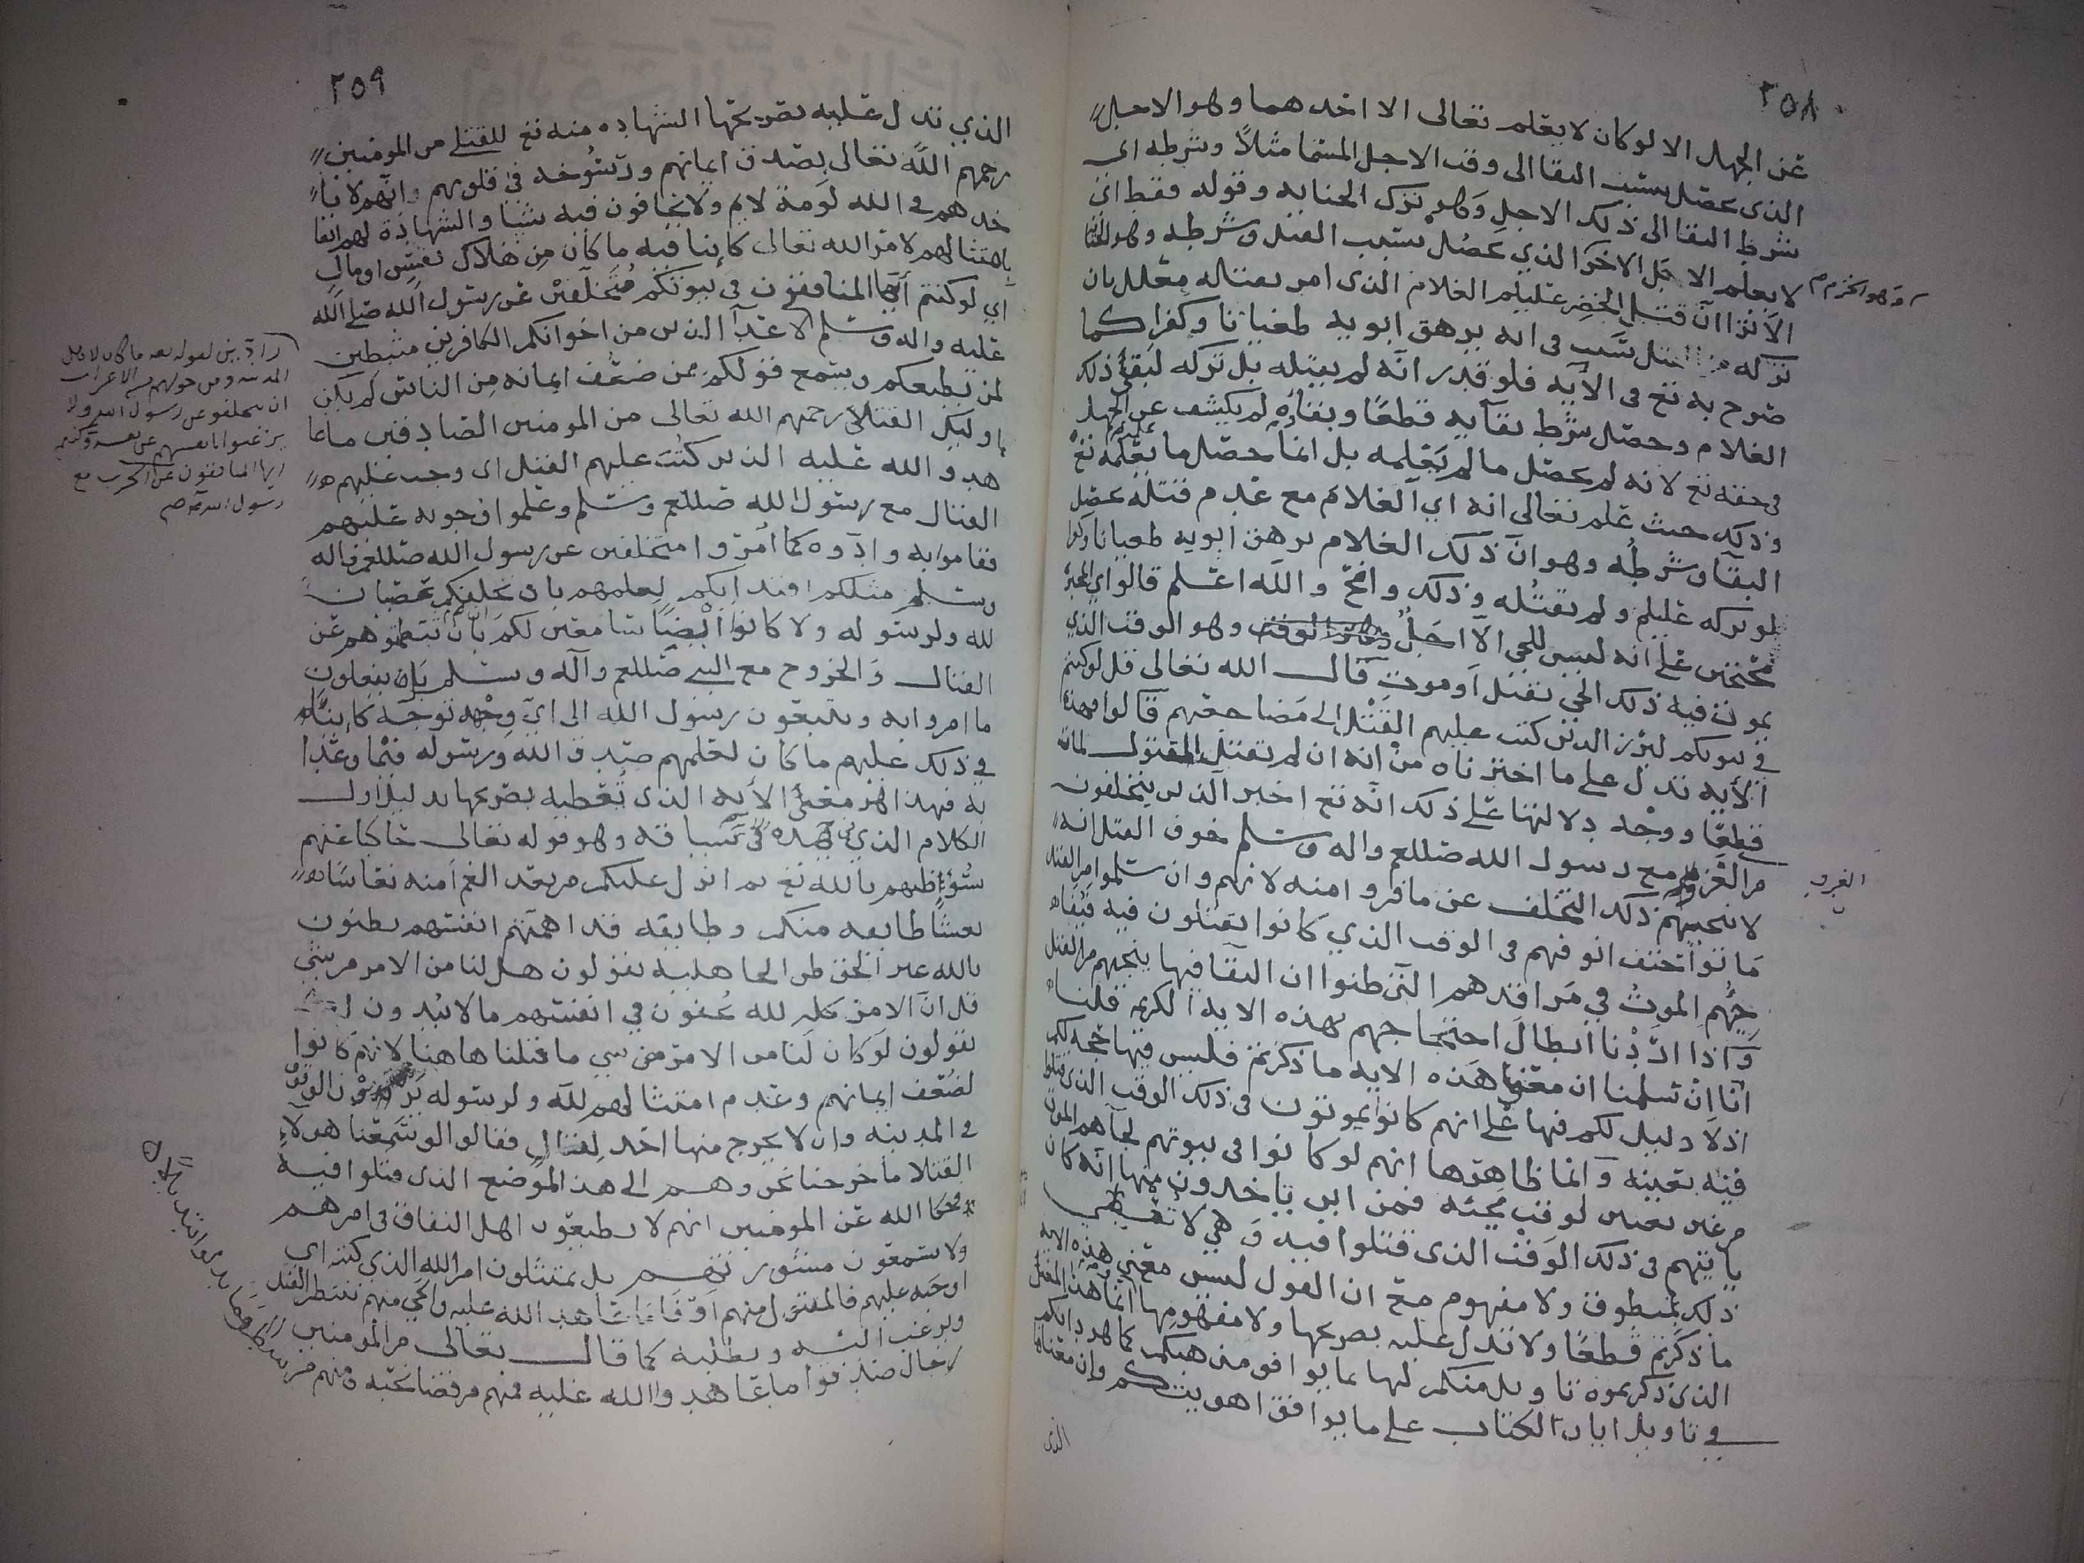 ٢٥٨
عن الجهل الا لو كان لا يعلم تعالى الا احدهما وهو الاجل
الذى يحصل بسبب البقا الى وقت الاجل المسما مثلاً وشرطه اى
شرط البقا الى ذلك الاجل وهو ترك الجنايه وقوله فقط اى
لا يعلم الاجل الاخر الذي يحصل بسبب القتل وشرطه وهو
وهو الخرم
الا ترا ان قتل الخضر عليلم الغلام الذى امر بقتاله معلل بان
تركه سبب فى انه يرهق ابويه طغيانا وكفرا كما
صرح به تع فى الآيه فلو قدر انه لم يقتله بل تركه لبقى ذلك
الغلام وحصل شرط بقآيه قطعًا وبقاؤه لم يكشف عن الجهل
فى حقه تع لانه لم يحصل ما لم يعلمه بل انما حصل ما يعلمه تع
وذلك حيث علم تعالى انه اي الغلام مع عدم قتله يحصل
البقا وشرطه وهو ان ذلك الغلام يرهق ابويه طغيانا وكفرا
لو تركه عليلم ولم يقتله وذلك واضح والله اعلم قالوا اي المجبره
محتجين على انه ليس للحى الا اجل وهو الوقت الذي
يموت فيه ذلك الحي بقتل او موت قال الله تعالى قل لو كنتم
في بيوتكم لبرز الذين كتب عليهم القتل الى مضاجعهم قالوا فهذه
الأيه تدل على ما اخترناه من انه ان لم يقتل المقتول لمات
قطعًا ووجه دلالتها على ذلك انه تع اخبر الذين يتخلفون
من الغزو مع رسول الله صللعم واله وسلم خوف القتل انه
الغزو
لا ينجيهم ذلك التخلف عن ما فروا منه لانهم وان سلموا من القتل
ماتوا حتف انوفهم فى الوقت الذي كانوا يقتلون فيه
جيهم الموت في مراقدهم التى ظنوا ان البقا فيها ينجيهم من القتل
واذا اردنا ابطال احتجاجهم بهذه الايه الكريمه قلنا
انا ان سلمنا ان معنى هذه الايه ما ذكرتم فليس فيها حجه لكم
اذ لا دليل لكم فيها على انهم كانوا يموتون فى ذلك الوقت الذى قتلوا
فيه بعينه وانما ظاهرها انهم لو كانوا فى بيوتهم لجاهم الموت
من غير تعيين لوقت مجيئه فمن اين تاخذون منها انه كان
ياتيهم فى ذلك الوقت الذى قتلوا فيه وهي لا تقتضي
ذلك بمنطوق ولا مفهوم مع ان القول ليس معنى هذه الايه
ما ذكرتم قطعًا ولا تدل عليه بصريحها ولا مفهومها انما هذا المعنى
الذى ذكرتموه تاويل منكم لها بما يوافق مذهبكم كما هو دابكم
في تاويل ايات الكتاب على ما يوافق اهويتكم وان معناها
الذى
٢٥٩
الذي تدل عليه بصريحها الشهاده منه تع للقتلى من المومنين
رحمهم الله تعالى بصدق ايمانهم ورسوخه فى قلوبهم وانهم لا تا
خذهم فى الله لومة لايم ولا يخافون فيه شيا والشهادة لهم ايضا
بامتثالهم لامر الله تعالى كاينا فيه ما كان من هلاك نفس او مال
اي لو كنتم ايها المنافقون في بيوتكم متخلفين عن رسول الله صلى الله
عليه واله وسلم لاعدا الدين من اخوانكم الكافرين مثبطين
لمن يطيعكم ويسمع قولكم ممن ضعف ايمانه من الناس لم يكن
اوليك القتلى رحمهم الله تعالى من المومنين الصادقين ما عا
هدوا الله عليه الذين كتب عليهم القتل اى وجب عليهم
القتال مع رسول الله صللعم وسلم وعلموا وجوبه عليهم
فقاموا به وادوه كما امروا متخلفين عن رسول الله صللعم واله
وسلم مثلكم اقتدا بكم لعلمهم بان تخلفكم عصيان
لله ولرسوله ولا كانوا ايضًا سامعين لكم بان تثبطوهم عن
القتال والخروج مع النبي صللعم وآله وسلم بل يفعلون
ما امروا به ويتبعون رسول الله الى اي وجه توجه كاينا
في ذلك عليهم ما كان لعلمهم صدق الله ورسوله فيما وعدا
به فهذا هو معنى الآيه الذى تعطيه بصريحها بدليل اول
الكلام الذي سياقه وهو قوله تعالى حاكيا عنهم
سؤ ظنهم بالله تع ثم انزل عليكم من بعد الغم امنه نعاسا
يغشا طايفه منكم وطايفه قد اهمتهم انفسهم يظنون
بالله غير الحق ظن الجاهليه يقولون هل لنا من الامر من شي
قل ان الامر كله لله يخفون في انفسهم ما لا يبدون لك
يقولون لو كان لنا من الامر من شي ما قتلنا هاهنا لانهم كانوا
لضعف ايمانهم وعدم امتثالهم لله ولرسوله يريدون الوقوف
فى المدينه وان لا يخرج منها احد لقتال فقالوا لو سمعنا هولاء
القتلا ما خرجنا نحن وهم الى هذا الموضع الذى قتلوا فيه
وحكا الله عن المومنين انهم لا يطيعون اهل النفاق فى امرهم
ولا يستمعون مشورتهم بل يمتثلون امر الله الذى كتبه اي
اوجبه عليهم فالمقتول منهم وفا ما عاهد الله عليه والحي منهم ينتظر القتل
ويرغب اليه ويطلبه كما قال تعالى من المومنين
رجال صدقوا ما عاهدوا الله عليه فمنهم من قضا نحبه ومنهم من ينتظر وما بدلوا تبديلا
رادين لقوله تعه ما كان لاهل
المدينه ومن حولهم من الاعراب
ان يتخلفو عن رسول الله ولا
يرغبوا بانفسهم عن نفسه وكنتم
ايها المنافقون عن الحرب مع
رسول الله صلم